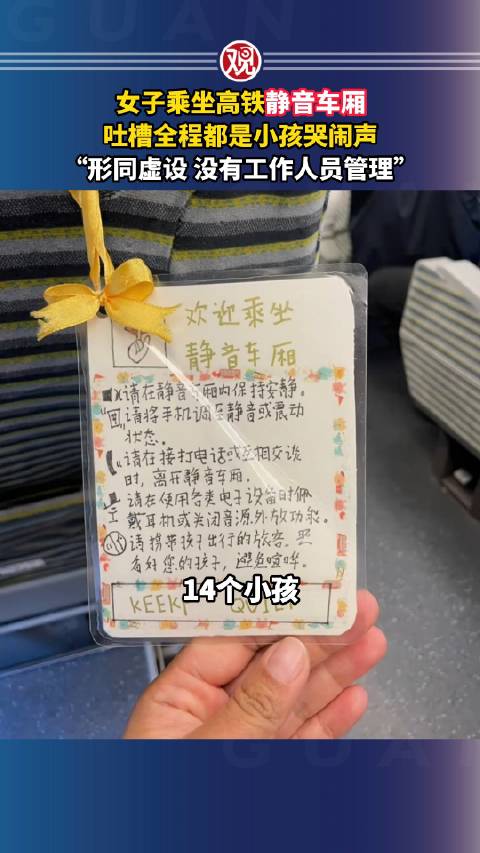 GUAN
观
女子乘坐高铁静音车厢
吐槽全程都是小孩哭闹声
“形同虚设 没有工作人员管理”
欢迎乘坐
静音车厢
请在静音车厢内保持安静。
请将手机调至静音或震动
状态。
请在接打电话或互相交谈
时,离开静音车厢.
请在使用各类电子设备时佩
戴耳机或关闭音源外放功能。
请携带孩子出行的旅客.照
看好您的孩子,避免喧哗.
14个小孩
KEEKP QUIET
GUAN